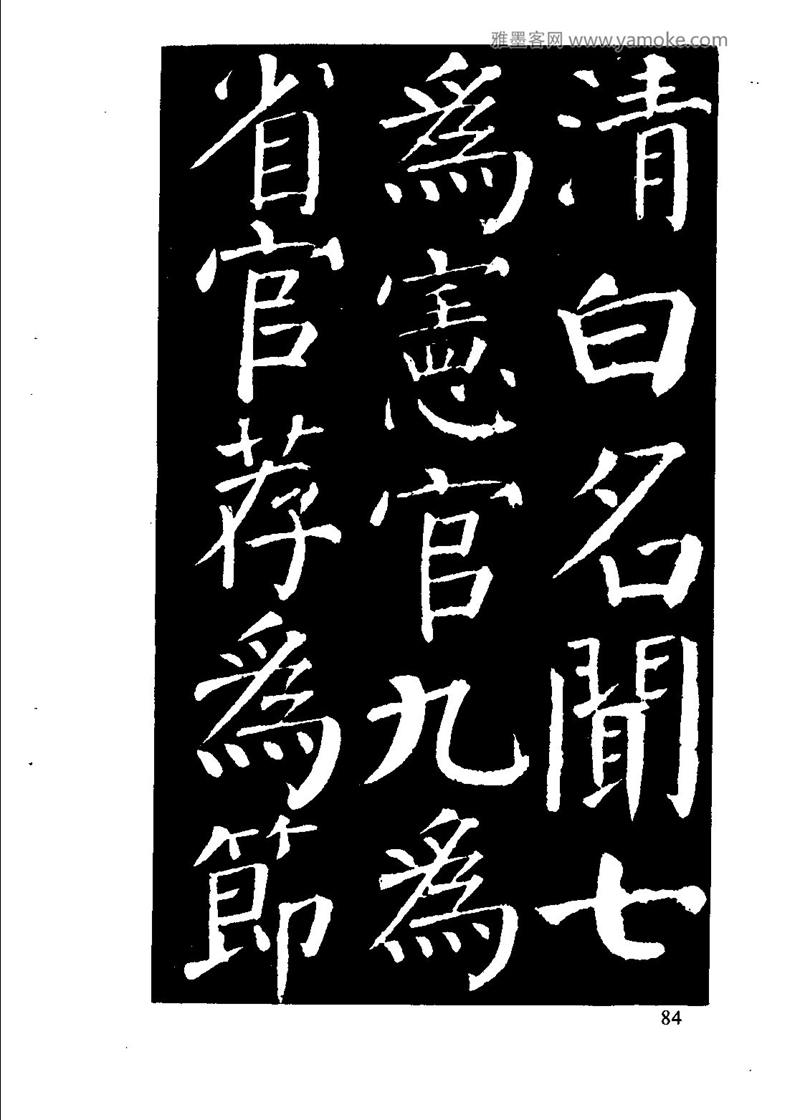 雅墨客网 www.yamoke.com
清白名聞七
爲憲官九爲
省官荐爲節
84